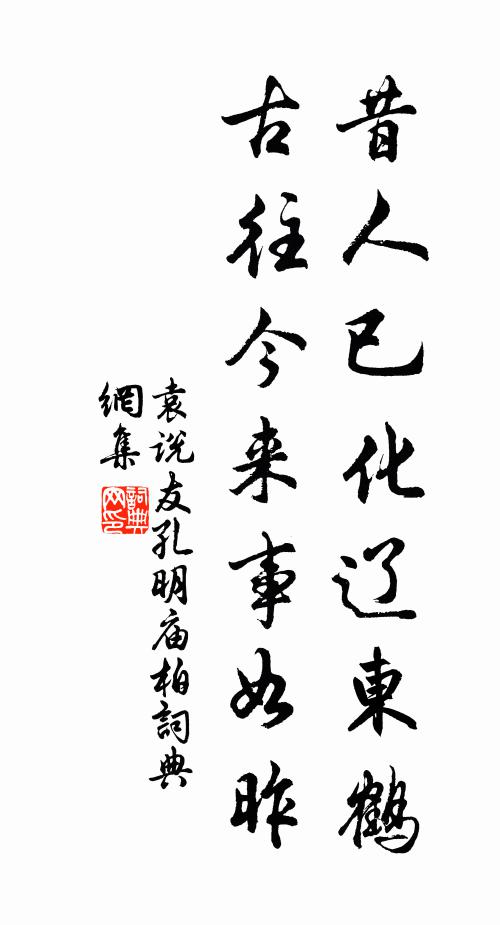 昔人已化辽東鹤
古往今来事如昨
袁说友孔明庙柏詞典
網集
詞典
网印